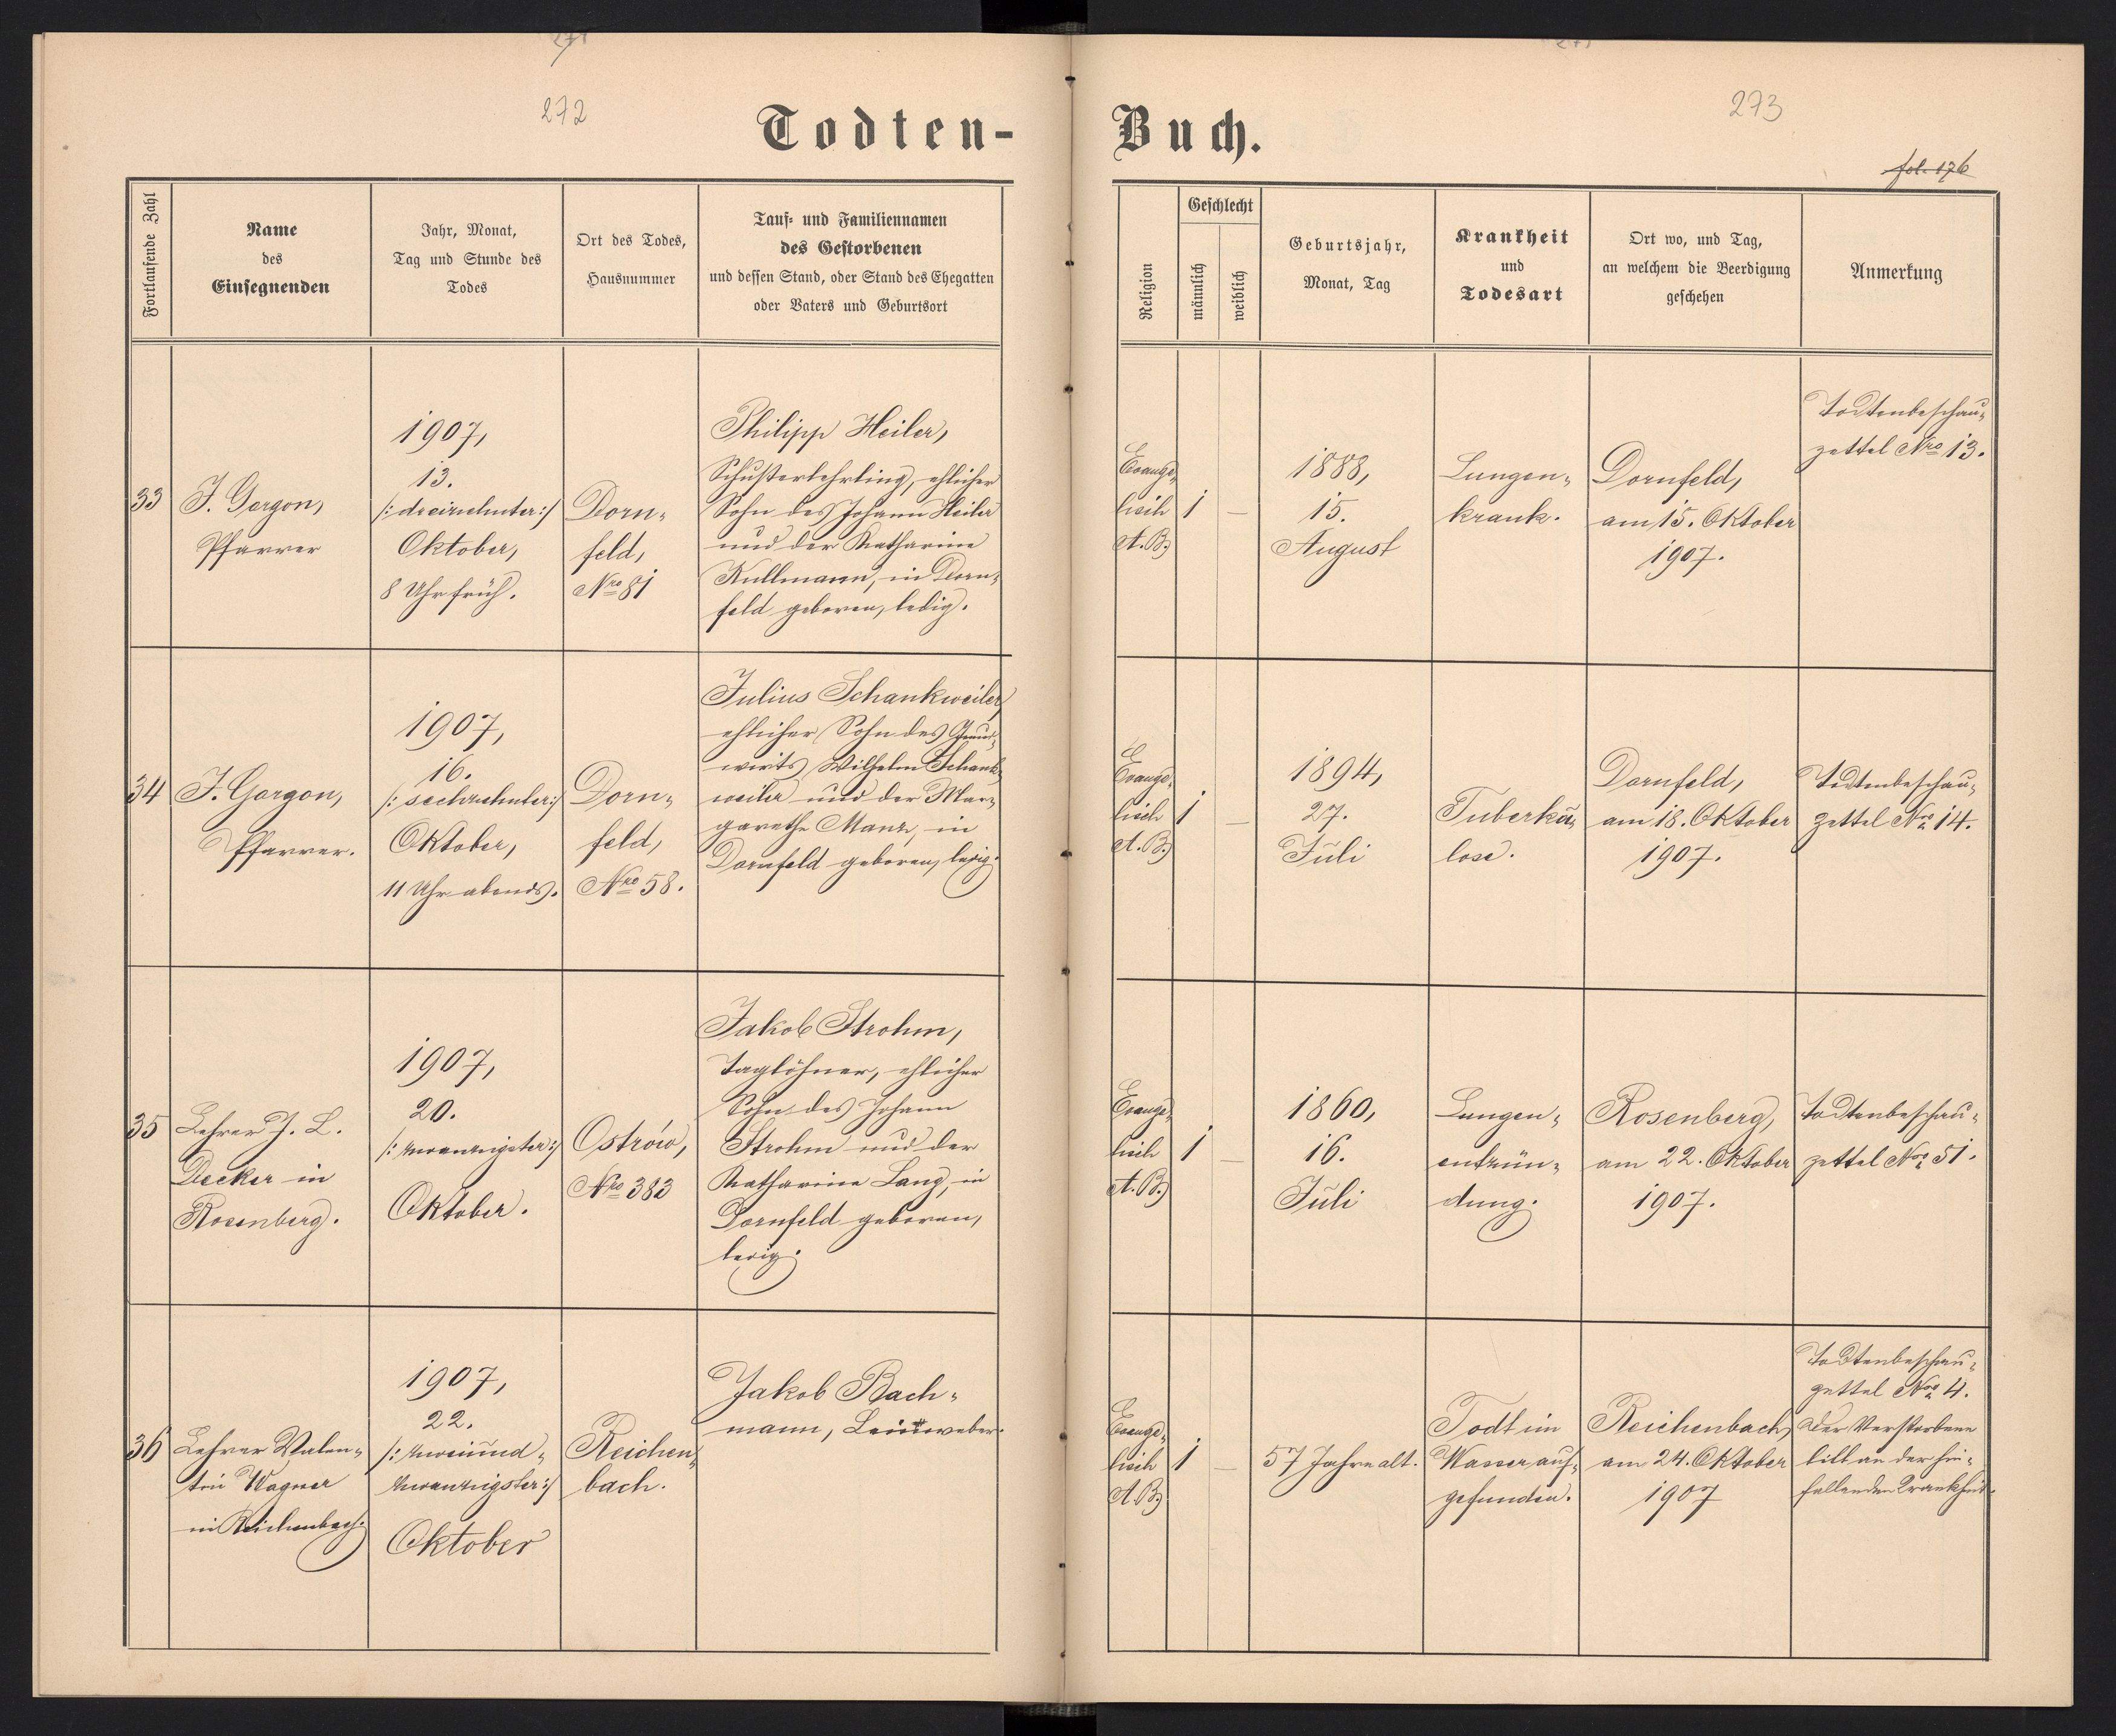 272
Todten-
Fortlaufende Zahl
Name
des
Einsegnenden
Jahr, Monat,
Tag und Stunde des
Todes
Ort des Todes,
Hausnummer
Tauf- und Familiennamen
des Gestorbenen
und dessen Stand, oder Stand des Ehegatten
oder Vaters und Geburtsort
33
J. Gorgon,
Pfarrer
1907,
13.
/: dreizehnter :/
Oktober,
8 Uhr früh.
Dorn-
feld,
Nro 81
Philipp Heiler,
Schusterlehrling, ehlicher
Sohn des Johann Heiler
und der Katharine
Kullmann, in Dorn-
feld geboren, ledig.
34
J. Gorgon,
Pfarrer.
1907,
16.
/: sechzehnter :/
Oktober,
11 Uhr abends.
Dorn-
feld,
Nro 58.
Julius Schankweiler,
ehlicher Sohn des Grund-
wirts Wilhelm Schank-
weiler und der Mar-
garethe Manz, in
Dornfeld geboren, ledig.
35
Lehrer J. L.
Decker in
Rosenberg.
1907,
20.
/: zwanzigster :/
Oktober.
Ostrów,
Nro 383
Jakob Strohm,
Taglöhner, ehlicher
Sohn des Johann
Strohm und der
Katharine Lang, in
Dornfeld geboren,
ledig.
36
Lehrer Valen-
tin Wagner
in Reichenbach.
1907,
22.
/: zweiund-
zwanzigster :/
Oktober
Reichen-
bach.
Jakob Bach-
mann, Leinweber.
273
Buch.
fol. 176
Religion
Geschlecht
männlich
weiblich
Geburtsjahr,
Monat, Tag
Krankheit
und
Todesart
Ort wo, und Tag,
an welchem die Beerdigung
geschehen
Anmerkung
Evange-
lisch
A. B.
1
—
1888,
15.
August
Lungen-
krank.
Dornfeld,
am 15. Oktober
1907.
Todtenbeschau-
zettel Nro 13.
Evange-
lisch
A. B.
1
—
1894,
27.
Juli
Tuberku-
lose.
Dornfeld,
am 18. Oktober
1907.
Todtenbeschau-
zettel Nro 14.
Evange-
lisch
A. B.
1
—
1860,
16.
Juli
Lungen-
entzün-
dung.
Rosenberg,
am 22. Oktober
1907.
Todtenbeschau-
zettel Nro 51.
Evange-
lisch
A. B.
1
—
57 Jahre alt.
Todt im
Wasser auf-
gefunden.
Reichenbach,
am 24. Oktober
1907
Todtenbeschau-
zettel Nro 4.
Der Verstorbene
litt an der hin-
fallenden Krankheit.